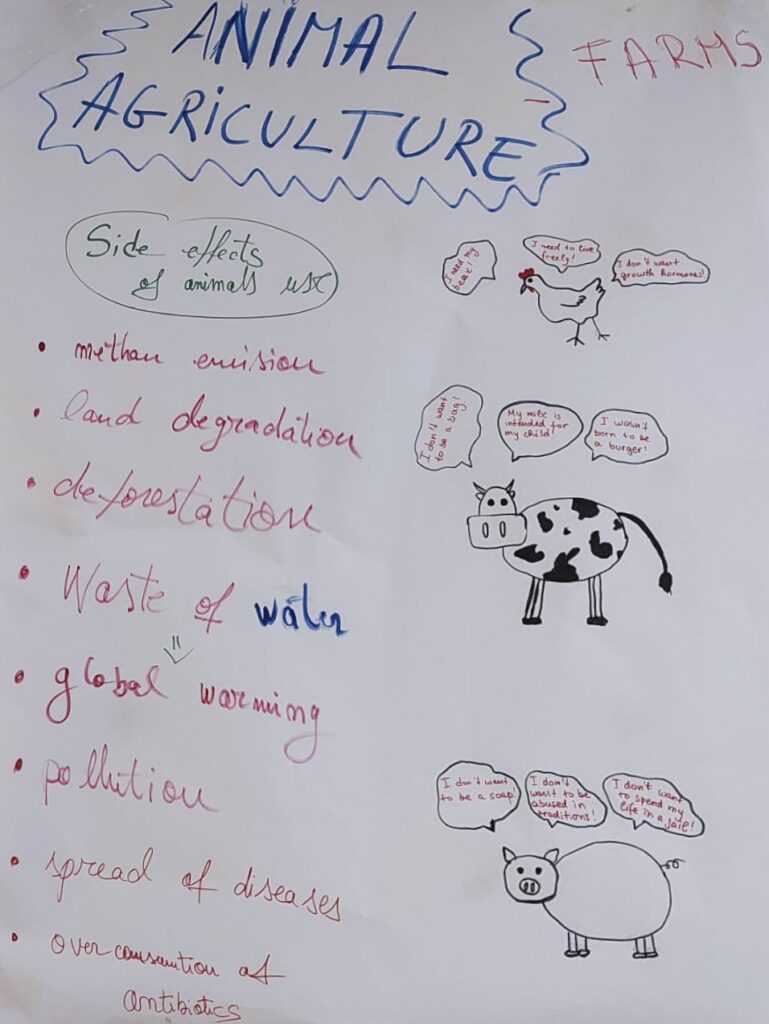 ANIMAL
AGRICULTURE
FARMS
Side effects
of animals use
• methan emision
• land degradation
• deforestation
• Waste of water
• global warming
• pollution
• spread of diseases
• over consumtion of
antibiotics
I need my
beak!
I need to live
freely!
I don't want
growth hormones!
I don't want
to be a bag!
My milk is
intended for
my child!
I wasn't
born to be
a burger!
I don't want
to be a soap!
I don't
want to be
abused in
traditions!
I don't want
to spend my
life in a jail!